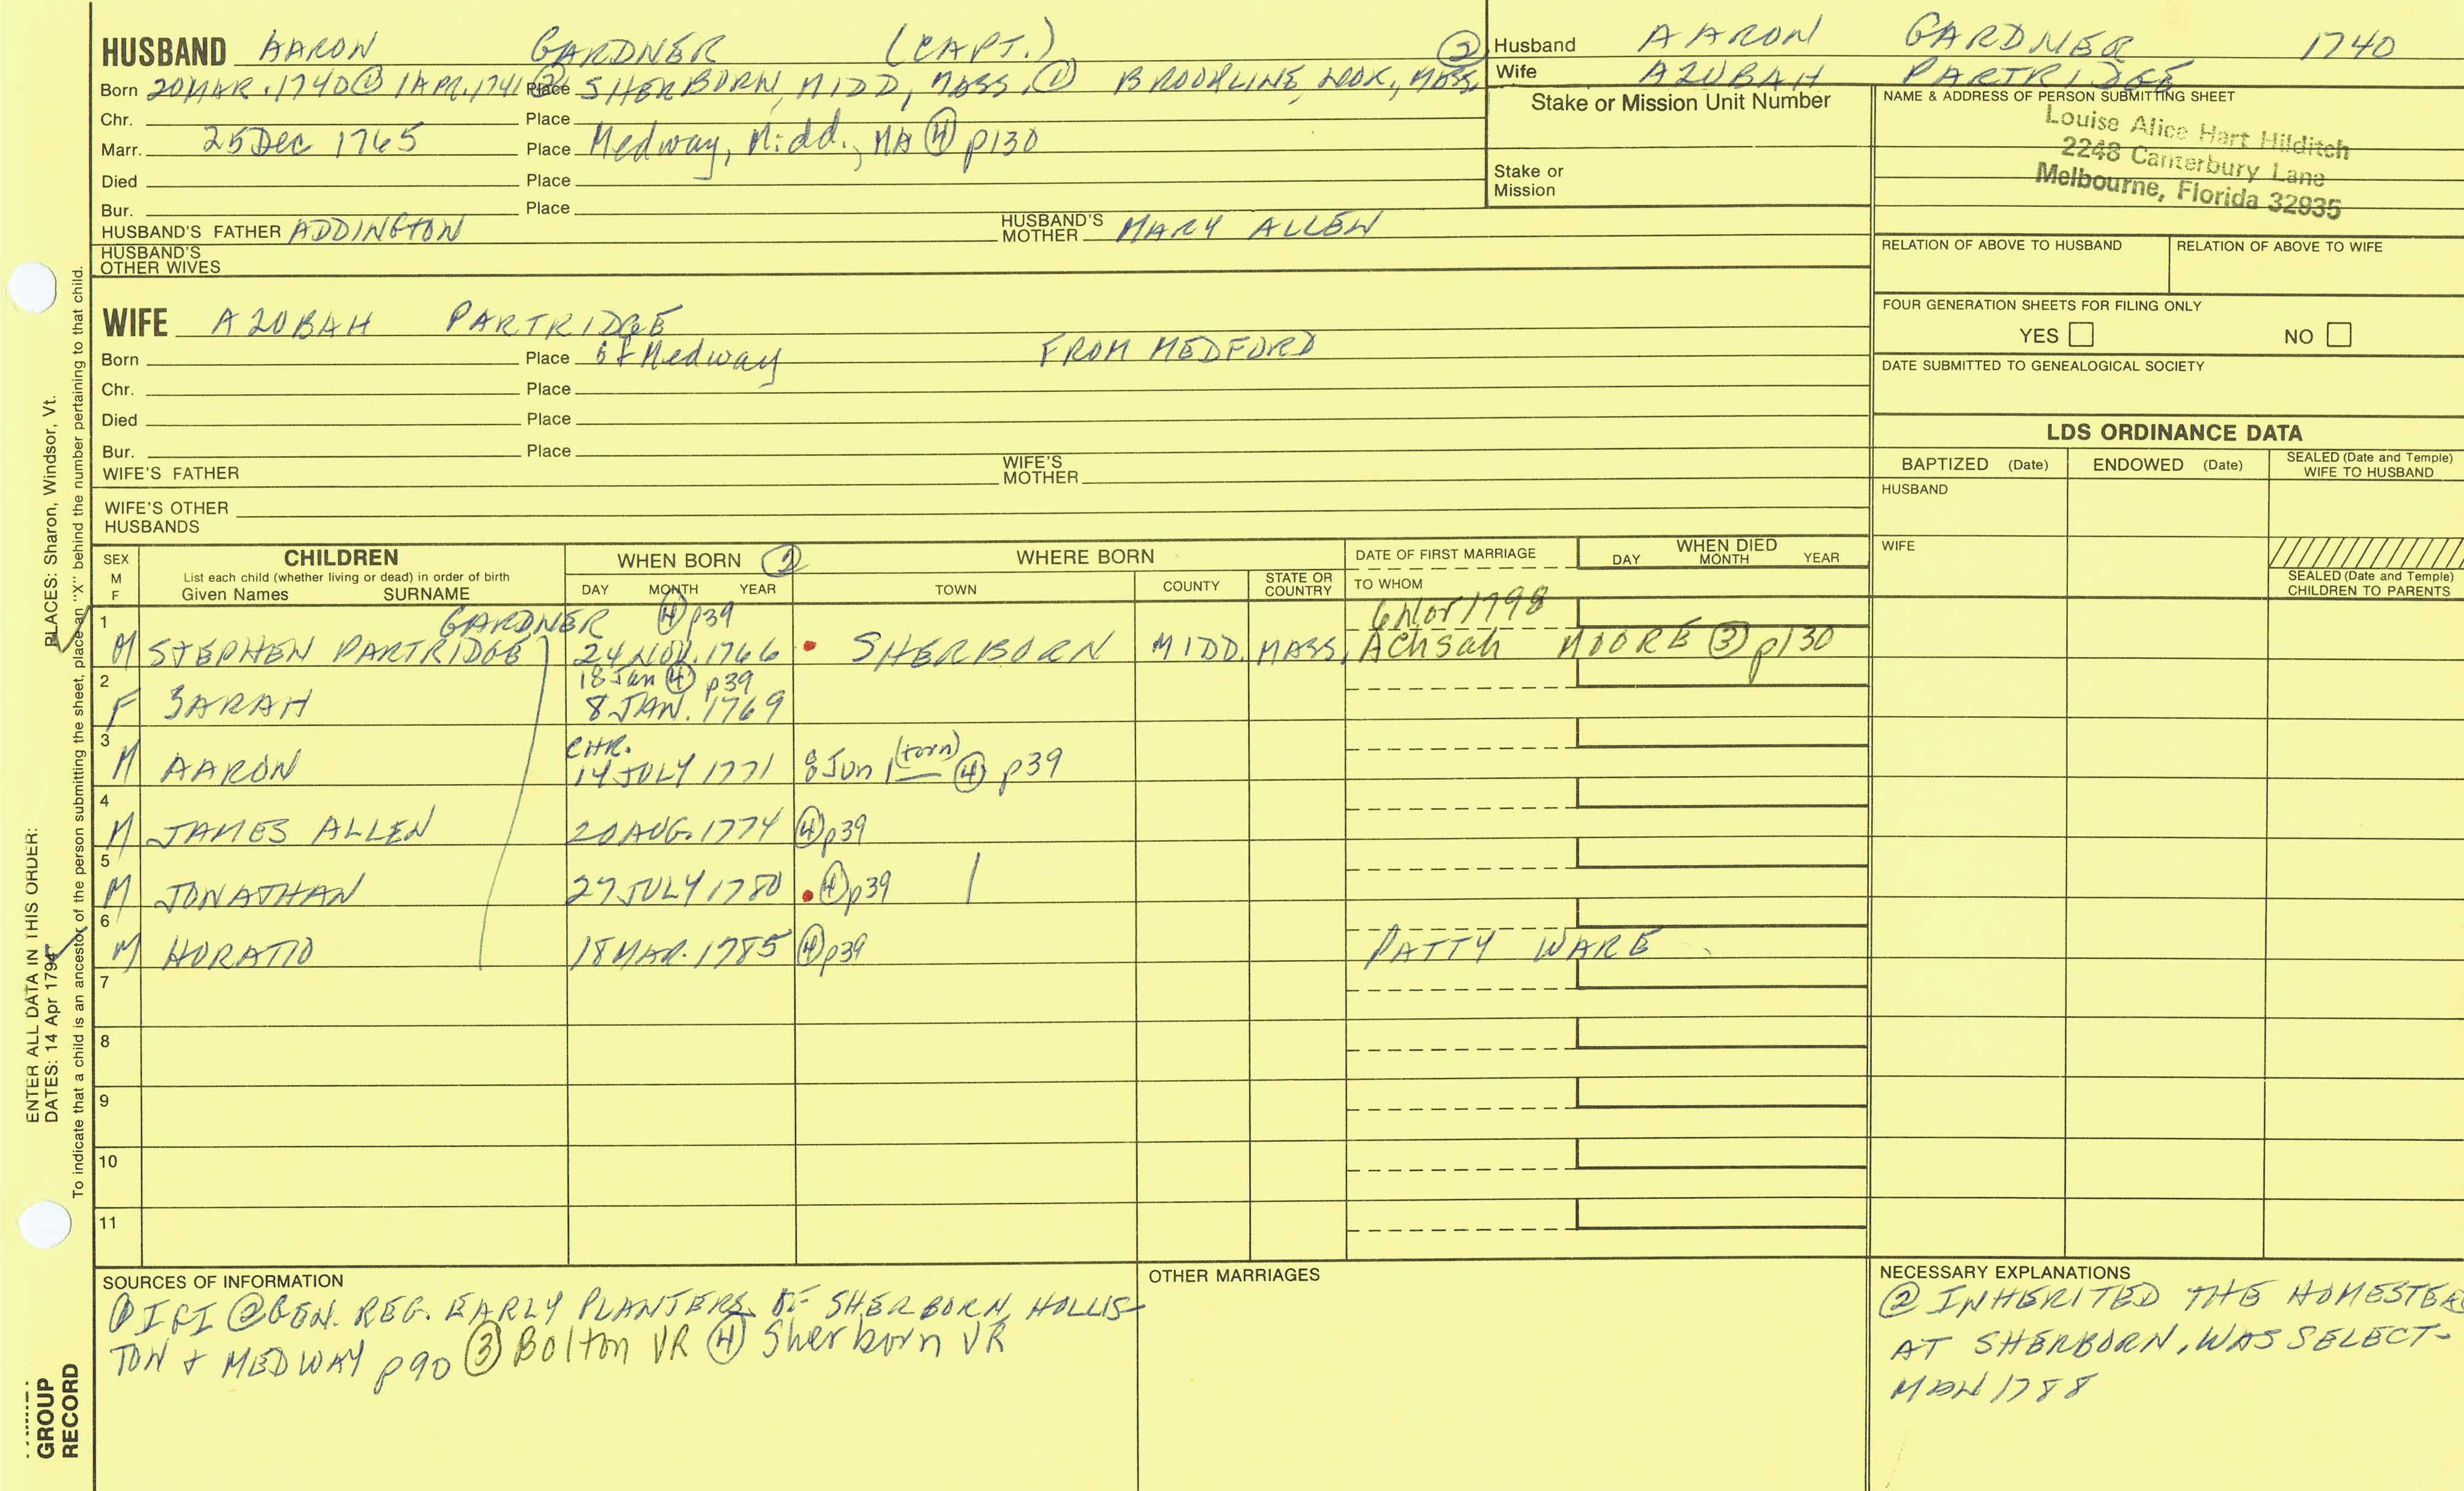 HUSBAND AARON GARDNER (CAPT.) ②
Born 20 MAR. 1740 ① 1 APR. 1741 ② Place SHERBORN, MIDD, MASS. ① BROOKLINE, , MASS.
Chr. Place
Marr. 25 Dec 1765 Place Medway, Midd., MA ④ p130
Died Place
Bur. Place
HUSBAND'S FATHER ADDINGTON HUSBAND'S MOTHER MARY ALLEN
HUSBAND'S OTHER WIVES
WIFE AZUBAH PARTRIDGE
Born Place of Medway FROM MEDFORD
Chr. Place
Died Place
Bur. Place
WIFE'S FATHER WIFE'S MOTHER
WIFE'S OTHER HUSBANDS
Husband AARON GARDNER 1740
Wife AZUBAH PARTRIDGE
Stake or Mission Unit Number
Stake or Mission
NAME & ADDRESS OF PERSON SUBMITTING SHEET
Louise Alice Hart Hilditch
2248 Canterbury Lane
Melbourne, Florida 32935
RELATION OF ABOVE TO HUSBAND RELATION OF ABOVE TO WIFE
FOUR GENERATION SHEETS FOR FILING ONLY
YES NO
DATE SUBMITTED TO GENEALOGICAL SOCIETY
LDS ORDINANCE DATA
BAPTIZED (Date) ENDOWED (Date) SEALED (Date and Temple) WIFE TO HUSBAND
HUSBAND
WIFE
SEALED (Date and Temple) CHILDREN TO PARENTS
SEX M F
CHILDREN
List each child (whether living or dead) in order of birth
Given Names SURNAME
WHEN BORN ②
DAY MONTH YEAR
WHERE BORN
TOWN COUNTY STATE OR COUNTRY
DATE OF FIRST MARRIAGE
TO WHOM
WHEN DIED
DAY MONTH YEAR
1 GARDNER ④ p39 6 Nov 1798
M STEPHEN PARTRIDGE 24 NOV. 1766 SHERBORN MIDD. MASS. Achsah MOORE ③ p130
2 18 Jan ④ p39
F SARAH 8 JAN. 1769
3 CHR. (torn)
M AARON 14 JULY 1771 8 Jun 1 ④ p39
4
M JAMES ALLEN 20 AUG. 1774 ④ p39
5
M JONATHAN 27 JULY 1780 ④ p39
6
M HORATIO 18 MAR. 1785 ④ p39 PATTY WARE
7
8
9
10
11
SOURCES OF INFORMATION
① IGI ② GEN. REG. EARLY PLANTERS OF SHERBORN, HOLLIS-
TON + MEDWAY p90 ③ Bolton VR ④ Sherborn VR
OTHER MARRIAGES
NECESSARY EXPLANATIONS
② INHERITED THE HOMESTEA
AT SHERBORN, WAS SELECT-
MAN 1788
ENTER ALL DATA IN THIS ORDER:
DATES: 14 Apr 1794
PLACES: Sharon, Windsor, Vt.
To indicate that a child is an ancestor of the person submitting the sheet, place an "X" behind the number pertaining to that child.
GROUP
RECORD